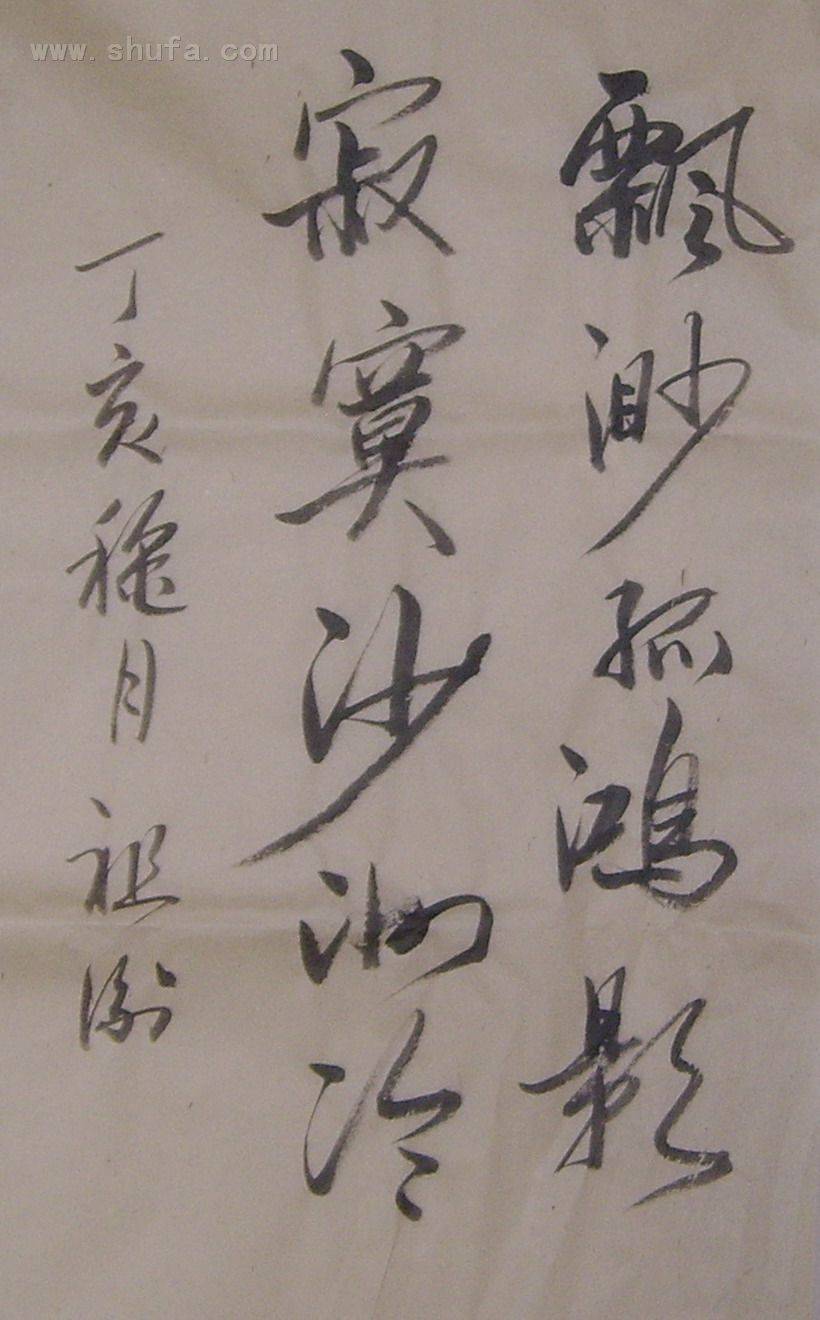 www.shufa.com
飄渺孤鴻影
寂寞沙洲冷
丁亥穐月 祖